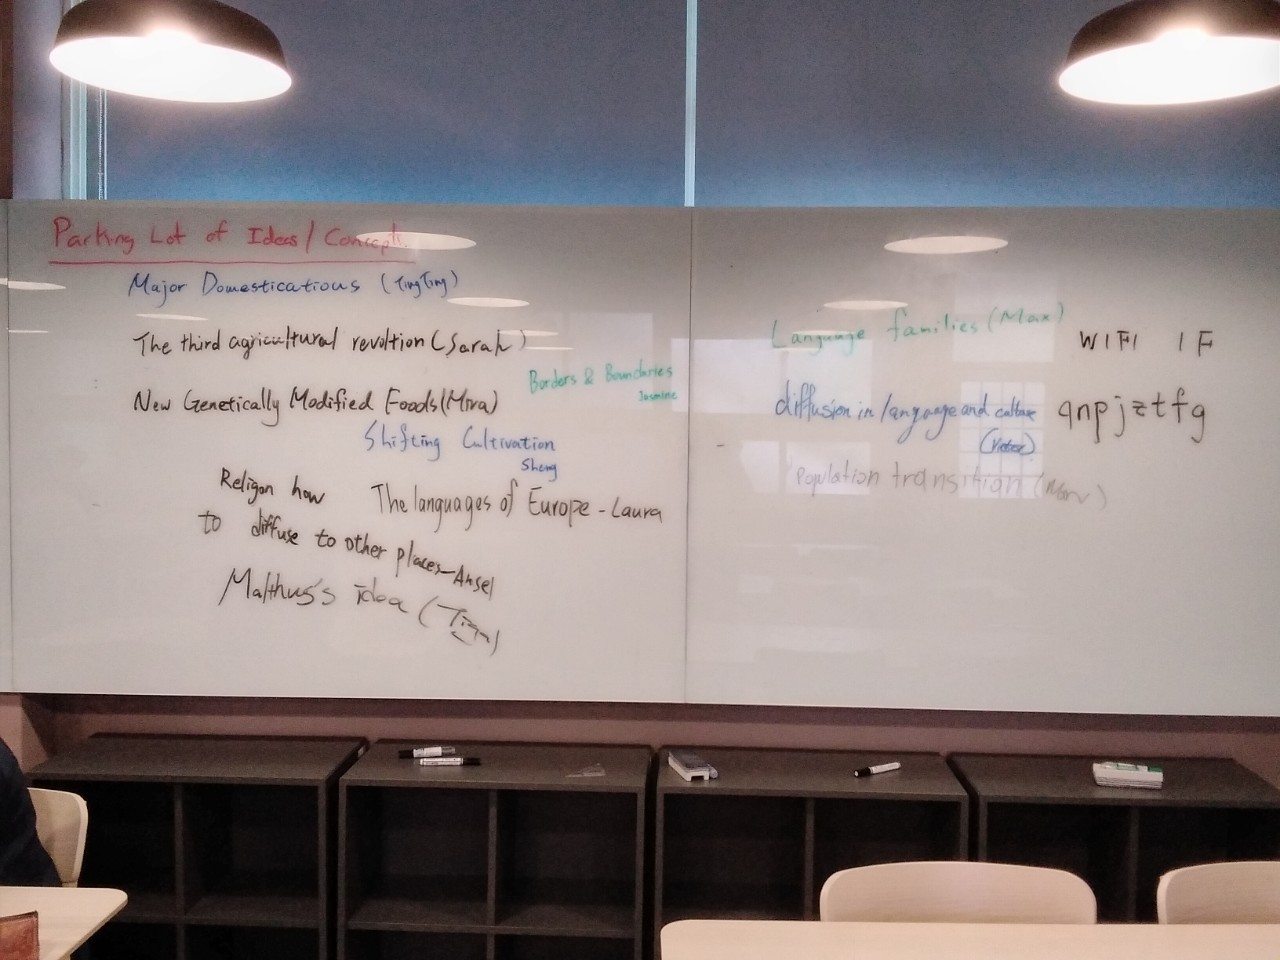 Parking Lot of Ideas / Concepts
Major Domestications (TingTing)
The third agricultural revoltion (Sarah)
Borders & Boundaries
Jasmine
New Genetically Modified Foods (Mira)
Shifting Cultivation
Sheng
Religon how
to diffuse to other places - Ansel
The languages of Europe - Laura
Malthus's idea
Language families (Max)
diffusion in language and culture
Population transition
WIFI IF
qnpjztfg